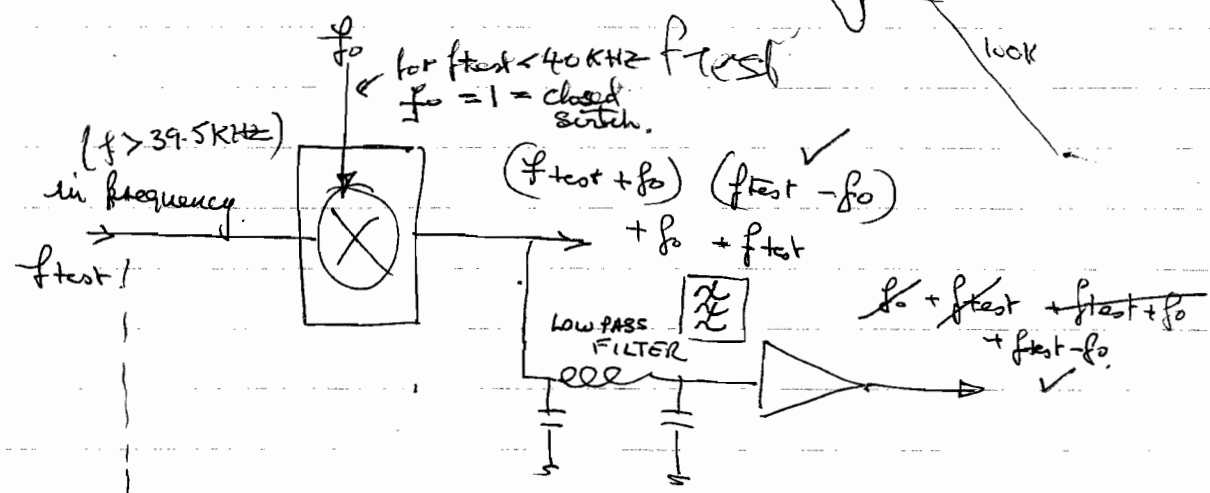 f₀
for ftest < 40KHZ ftest
f₀ = 1 = closed
switch.
100K
(f > 39.5KHZ)
in frequency
ftest
(ftest + f₀) (ftest - f₀)
+ f₀ + ftest
LOW PASS
FILTER
f₀ + ftest + ftest + f₀
+ ftest - f₀.